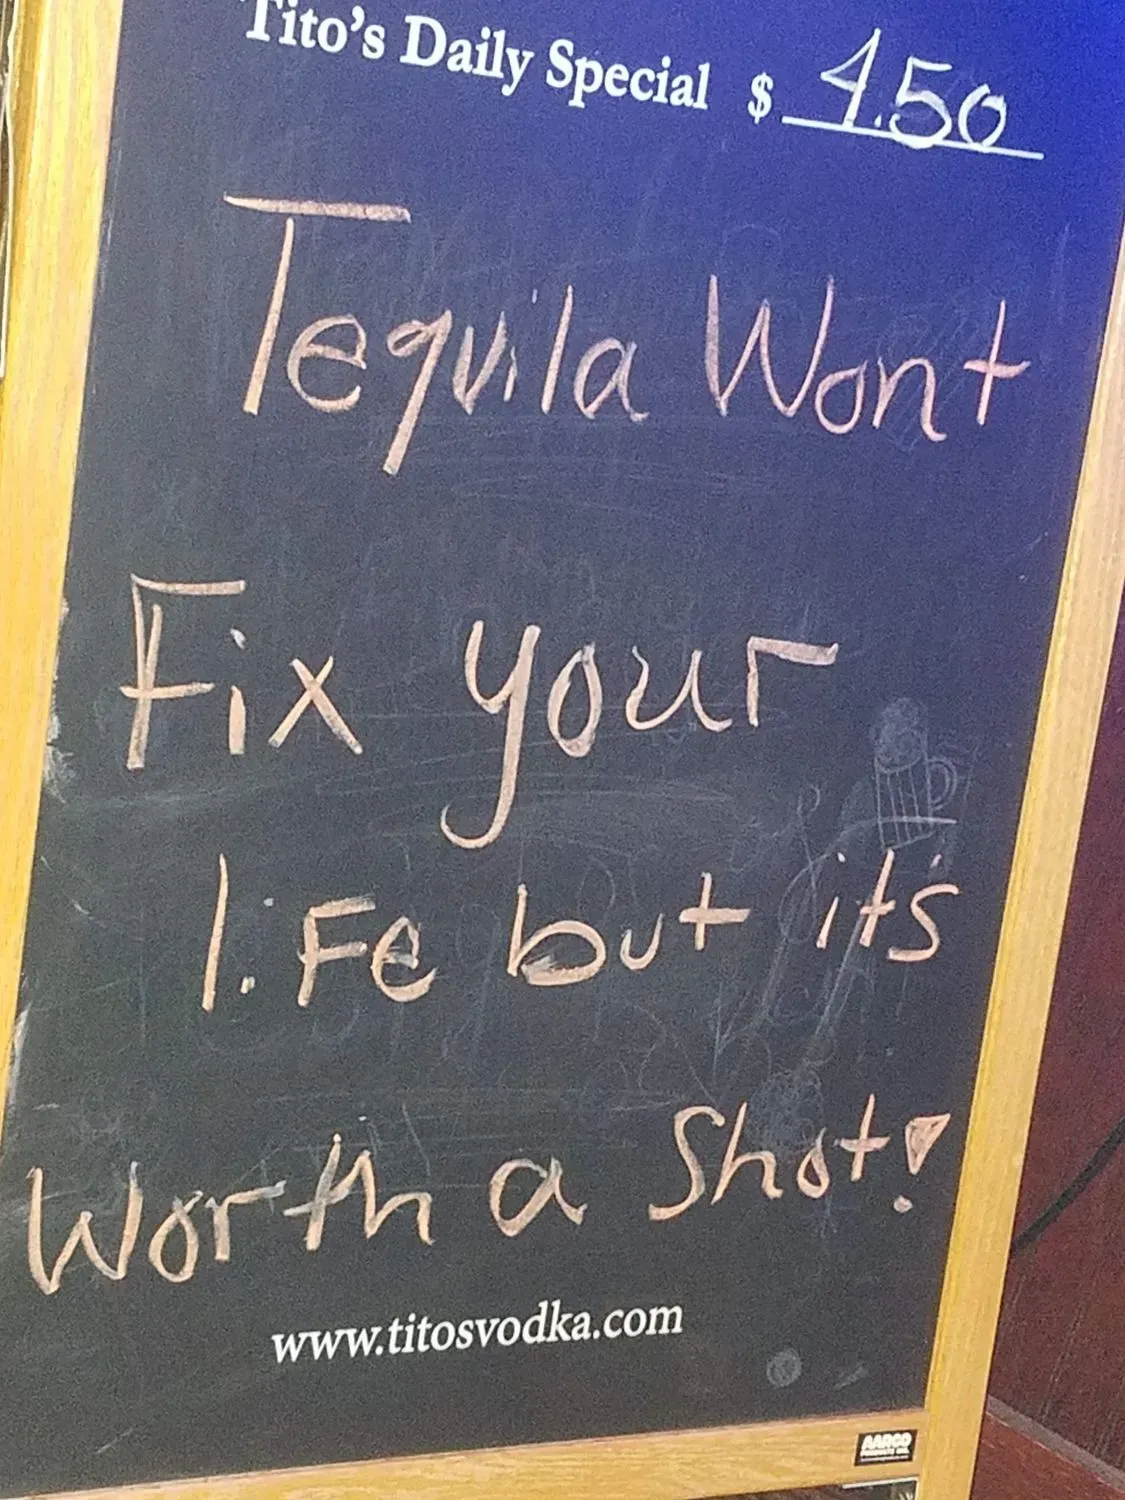 Tito's Daily Special $ 4.50
Tequila Wont
Fix your
liFe but it's
Worth a Shot!
www.titosvodka.com
AARCO